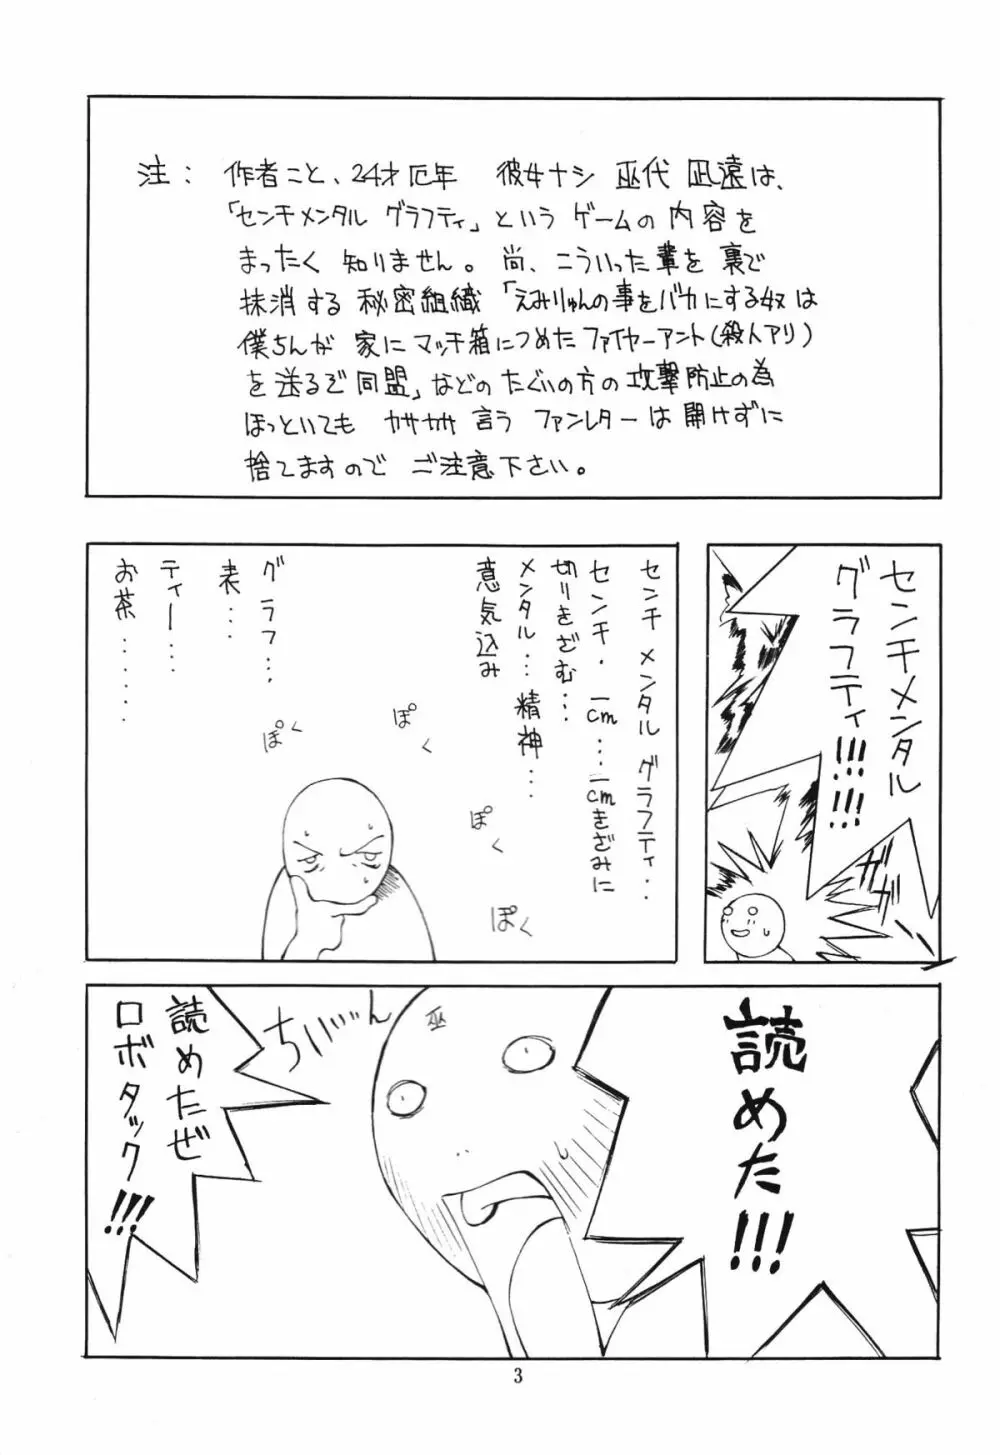 注： 作者こと、24才厄年 彼女ナシ 巫代 凪遠は、
「センチメンタル グラフティ」という ゲームの 内容を
まったく 知りません。 尚、こういった輩を 裏で
抹消する 秘密組織 「えみりゅんの事をバカにする奴は
僕ちんが 家に マッチ箱につめた ファイヤーアント(殺人アリ)
を 送るぞ同盟」などの たぐいの方の 攻撃防止の為
ほっといても カサカサ 言う ファンレターは 開けずに
捨てますので ご注意下さい。
センチメンタル
グラフティ!!!!!!
ガガガ
センチ メンタル グラフティ‥
センチ・一cm…一cmきざみに
切りきざむ…
メンタル…精神…
意気込み
グラフ…
表…
ティー…
お茶……
ぽく
ぽく
ぽく
ぽく
読めた!!!
巫
ちぃーん
読めたぜ
ロボタック!!!
3